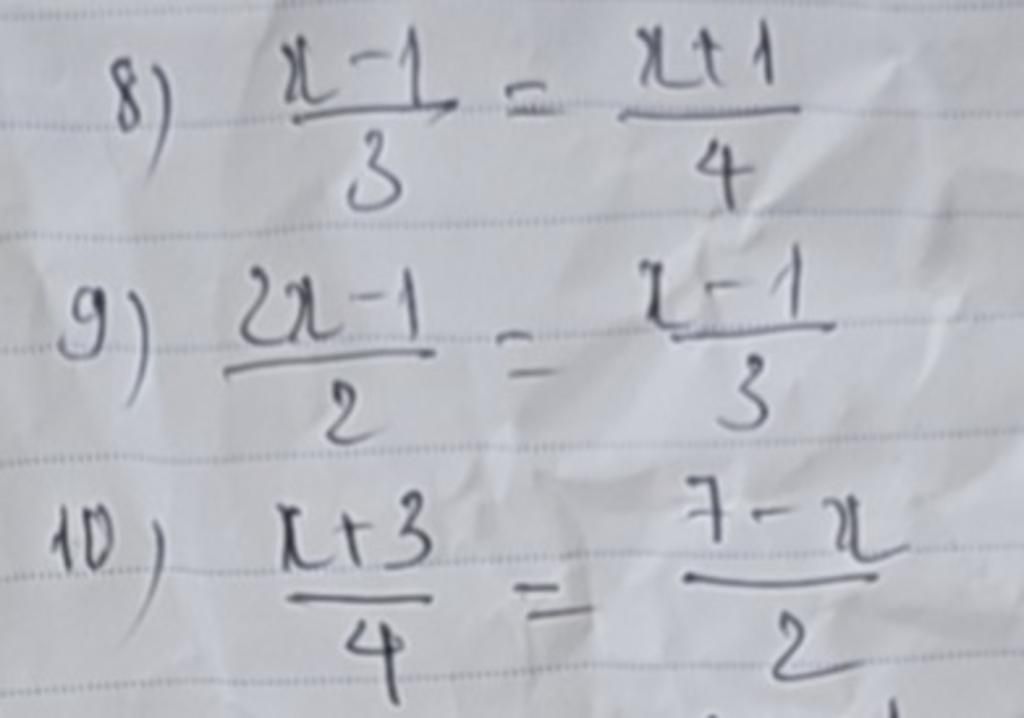 8) x-1/3 = x+1/4
9) 2x-1/2 = x-1/3
10) x+3/4 = 7-x/2